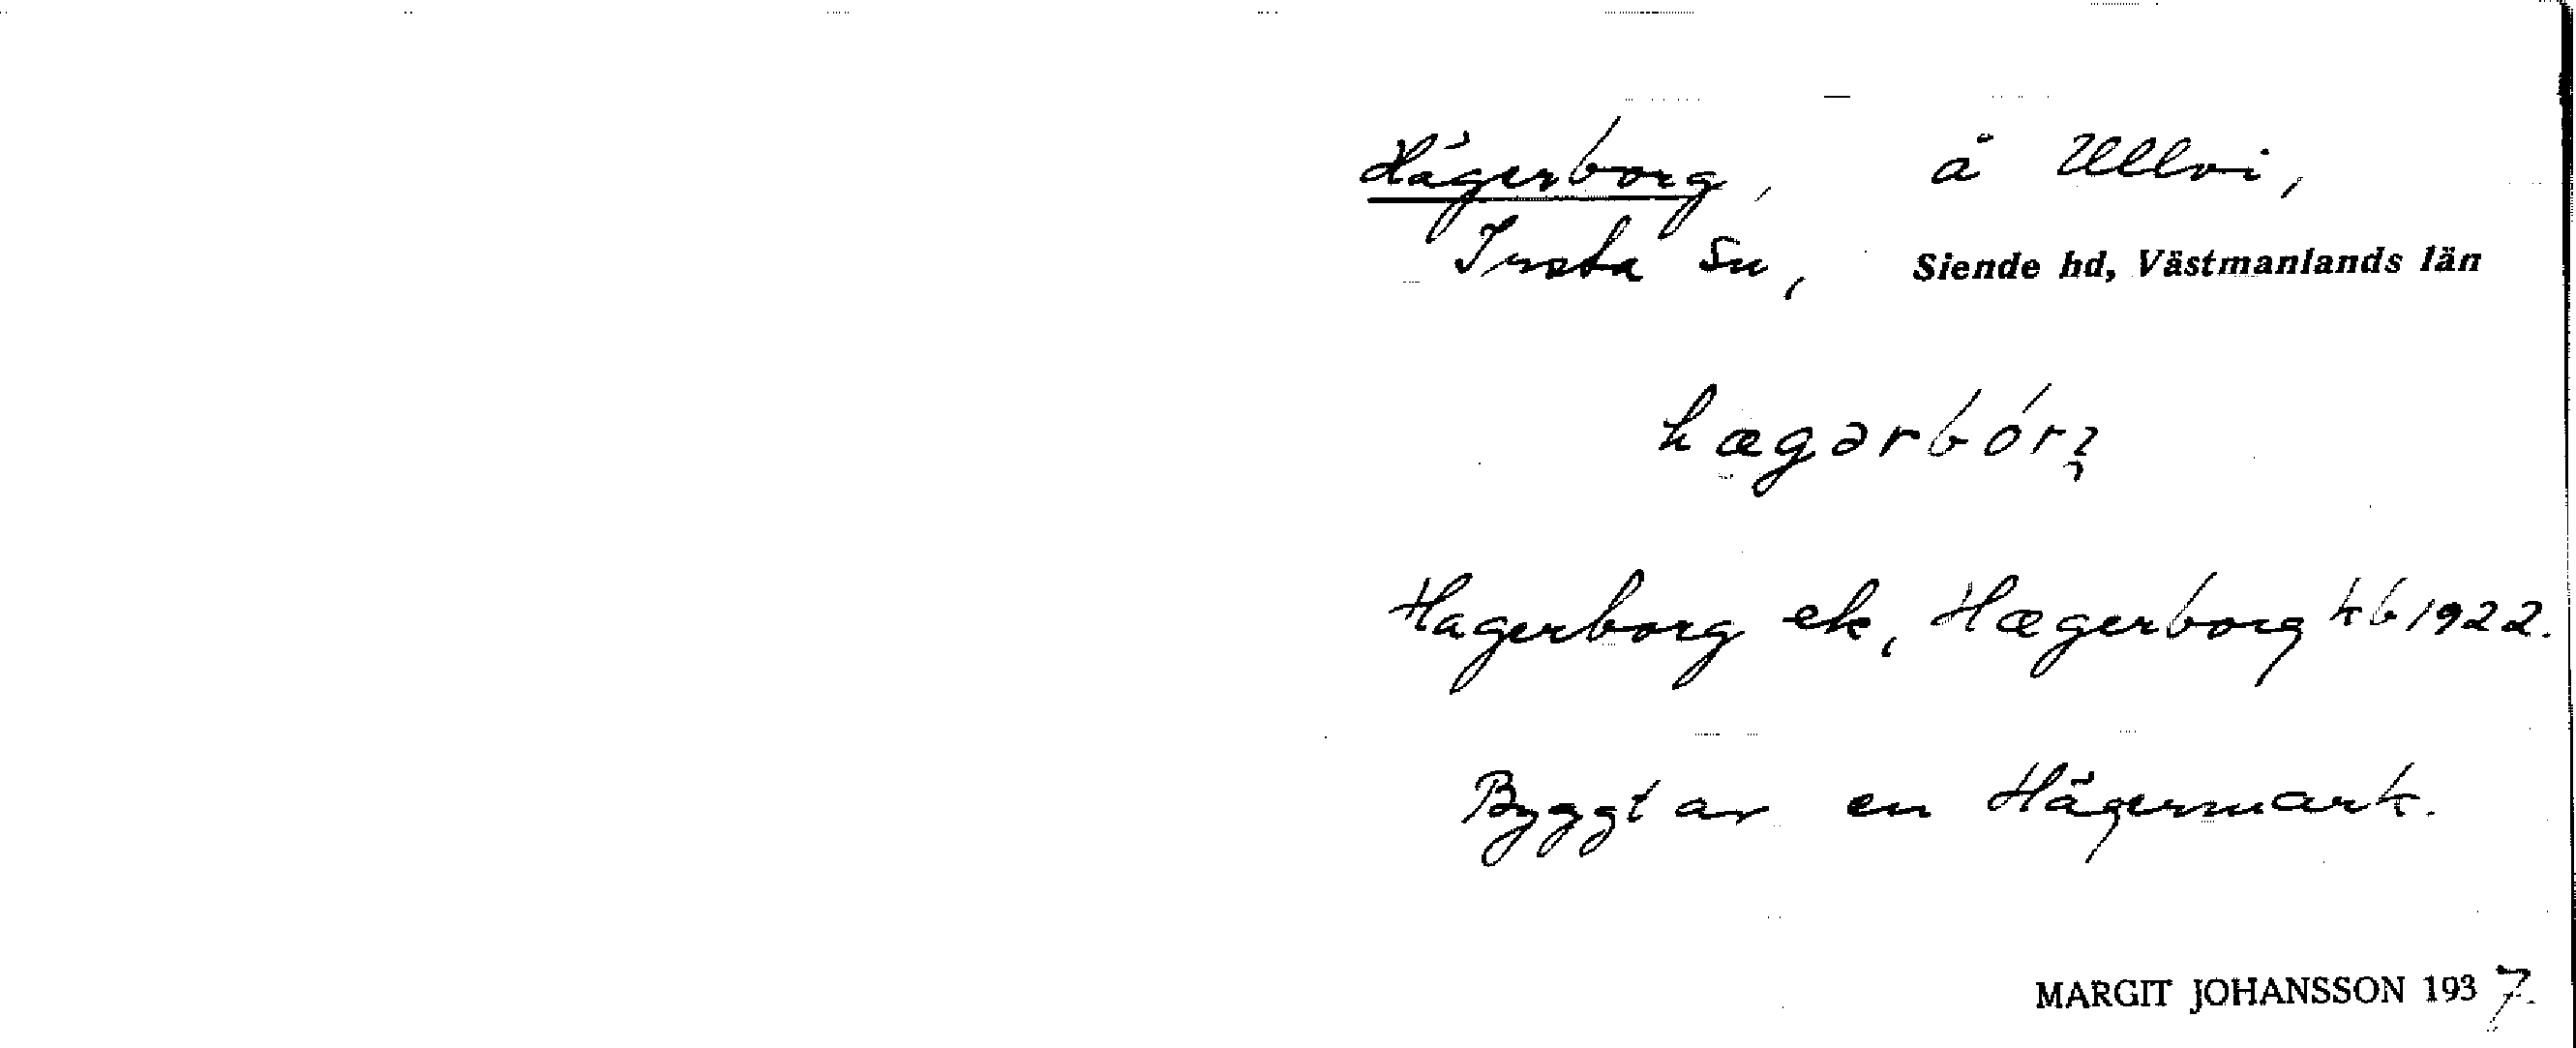 Hägerborg, å Ullvi,
Irsta sn, Siende hd, Västmanlands län
hægərbórj
Hagerborg ek, Hægerborg kb 1922.
Byggt av en Hägermark.
MARGIT JOHANSSON 1937.